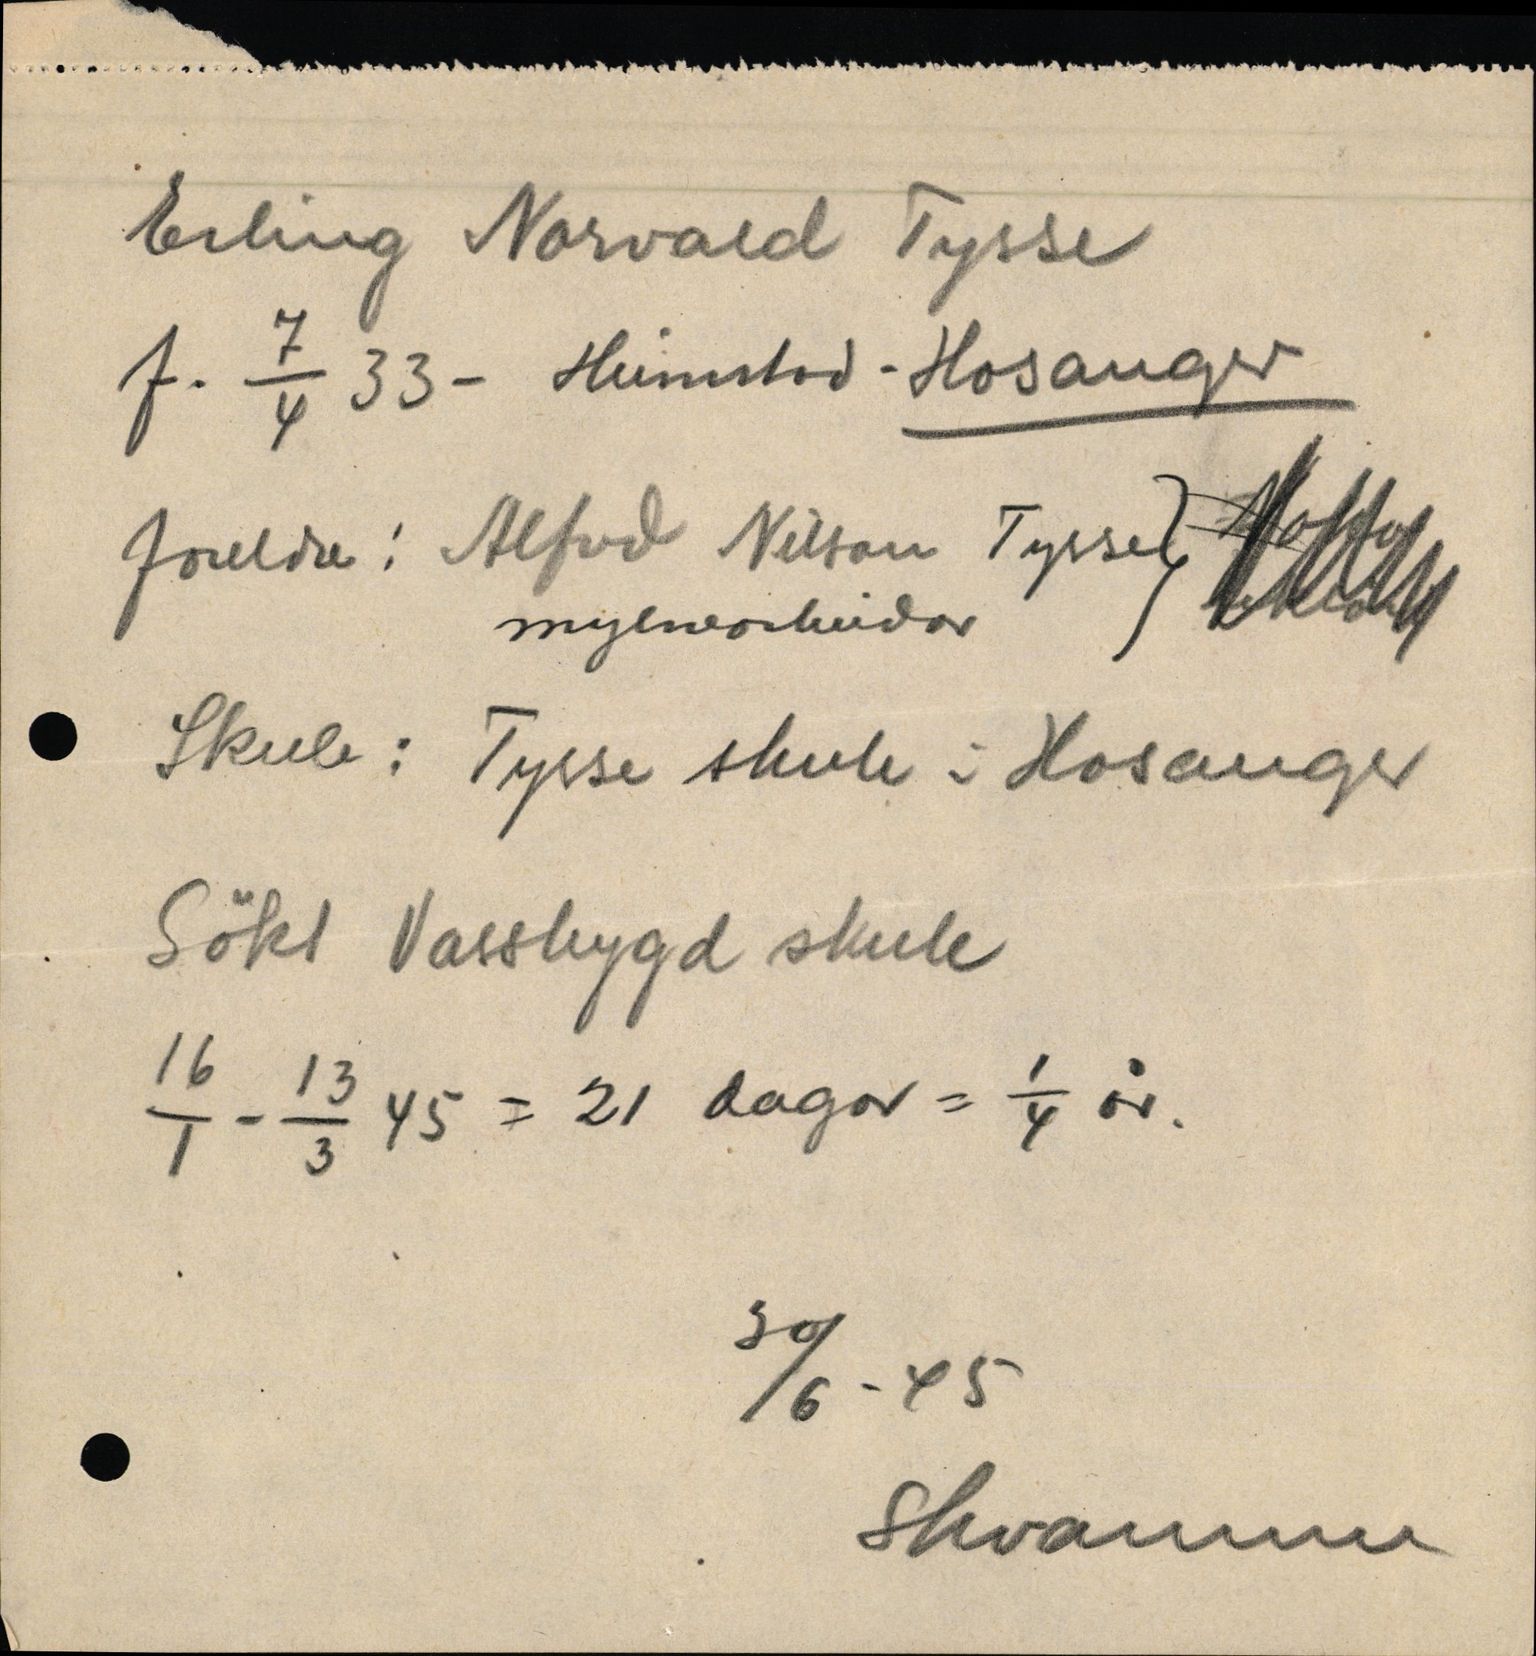 Erling Norvald Tysse
f. 7/4 33 - Heimstad - Hosanger
foreldre: Alfred Nilson Tysse
mylnearbeidar
Skule: Tysse skule i Hosanger
Sökt Vassbygd skule
16/1 - 13/3 45 = 21 dagar = 1/4 år.
30/6 - 45